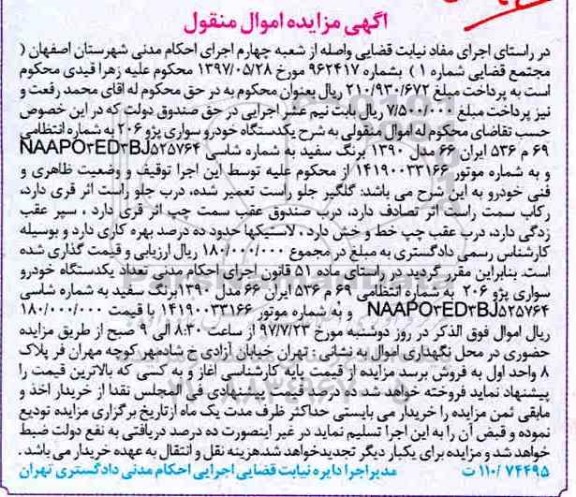 آگهی مزایده اموال منقول
در راستای اجرای مفاد نیابت قضایی واصله از شعبه چهارم اجرای احکام مدنی شهرستان اصفهان (
مجتمع قضایی شماره ۱ ) بشماره ۹۶۲۴۱۷ مورخ ۱۳۹۷/۰۵/۲۸ محکوم علیه زهرا قیدی محکوم
است به پرداخت مبلغ ۲۱۰/۹۳۰/۶۷۲ ریال بعنوان محکوم به در حق محکوم له اقای محمد رفعت و
نیز پرداخت مبلغ ۷/۵۰۰/۰۰۰ ریال بابت نیم عشر اجرایی در حق صندوق دولت که در این خصوص
حسب تقاضای محکوم له اموال منقولی به شرح یکدستگاه خودرو سواری پژو ۲۰۶ به شماره انتظامی
۶۹ م ۵۳۶ ایران ۶۶ مدل ۱۳۹۰ برنگ سفید به شماره شاسی NAAPO۳ED۳BJ۵۲۵۷۶۴
و به شماره موتور ۱۴۱۹۰۰۳۳۱۶۶ از محکوم علیه توسط این اجرا توقیف و وضعیت ظاهری و
فنی خودرو به این شرح می باشد: گلگیر جلو راست تعمیر شده، درب جلو راست اثر قری دارد،
رکاب سمت راست اثر تصادف دارد، درب صندوق عقب سمت چپ اثر قری دارد ، سپر عقب
زدگی دارد، درب عقب چپ خط و خش دارد، لاستیکها حدود ده درصد بهره کاری دارد و بوسیله
کارشناس رسمی دادگستری به مبلغ در مجموع ۱۸۰/۰۰۰/۰۰۰ ریال ارزیابی و قیمت گذاری شده
است. بنابراین مقرر گردید در راستای ماده ۵۱ قانون اجرای احکام مدنی تعداد یکدستگاه خودرو
سواری پژو ۲۰۶ به شماره انتظامی ۶۹ م ۵۳۶ ایران ۶۶ مدل ۱۳۹۰ برنگ سفید به شماره شاسی
NAAPO۳ED۳BJ۵۲۵۷۶۴ و به شماره موتور ۱۴۱۹۰۰۳۳۱۶۶ با قیمت ۱۸۰/۰۰۰/۰۰۰
ریال اموال فوق الذکر در روز دوشنبه مورخ ۹۷/۷/۲۳ از ساعت ۸:۳۰ الی ۹ صبح از طریق مزایده
حضوری در محل نگهداری اموال به نشانی : تهران خیابان آزادی خ شادمهر کوچه مهران فر پلاک
۸ واحد اول به فروش برسد مزایده از قیمت پایه کارشناسی آغاز و به کسی که بالاترین قیمت را
پیشنهاد نماید فروخته خواهد شد. ده درصد قیمت پیشنهادی فی المجلس نقدا از خریدار اخذ و
مابقی ثمن مزایده را خریدار می بایستی حداکثر ظرف مدت یک ماه ازتاریخ برگزاری مزایده تودیع
نموده و قبض آن را به این اجرا تسلیم نماید در غیر اینصورت ده درصد دریافتی به نفع دولت ضبط
خواهد شد و مزایده برای یکبار دیگر تجدیدخواهد شد.هزینه نقل و انتقال به عهده خریدار می باشد .
۱۱۰/۷۴۴۹۵ ت مدیر اجرا دایره نیابت قضایی اجرایی احکام مدنی دادگستری تهران